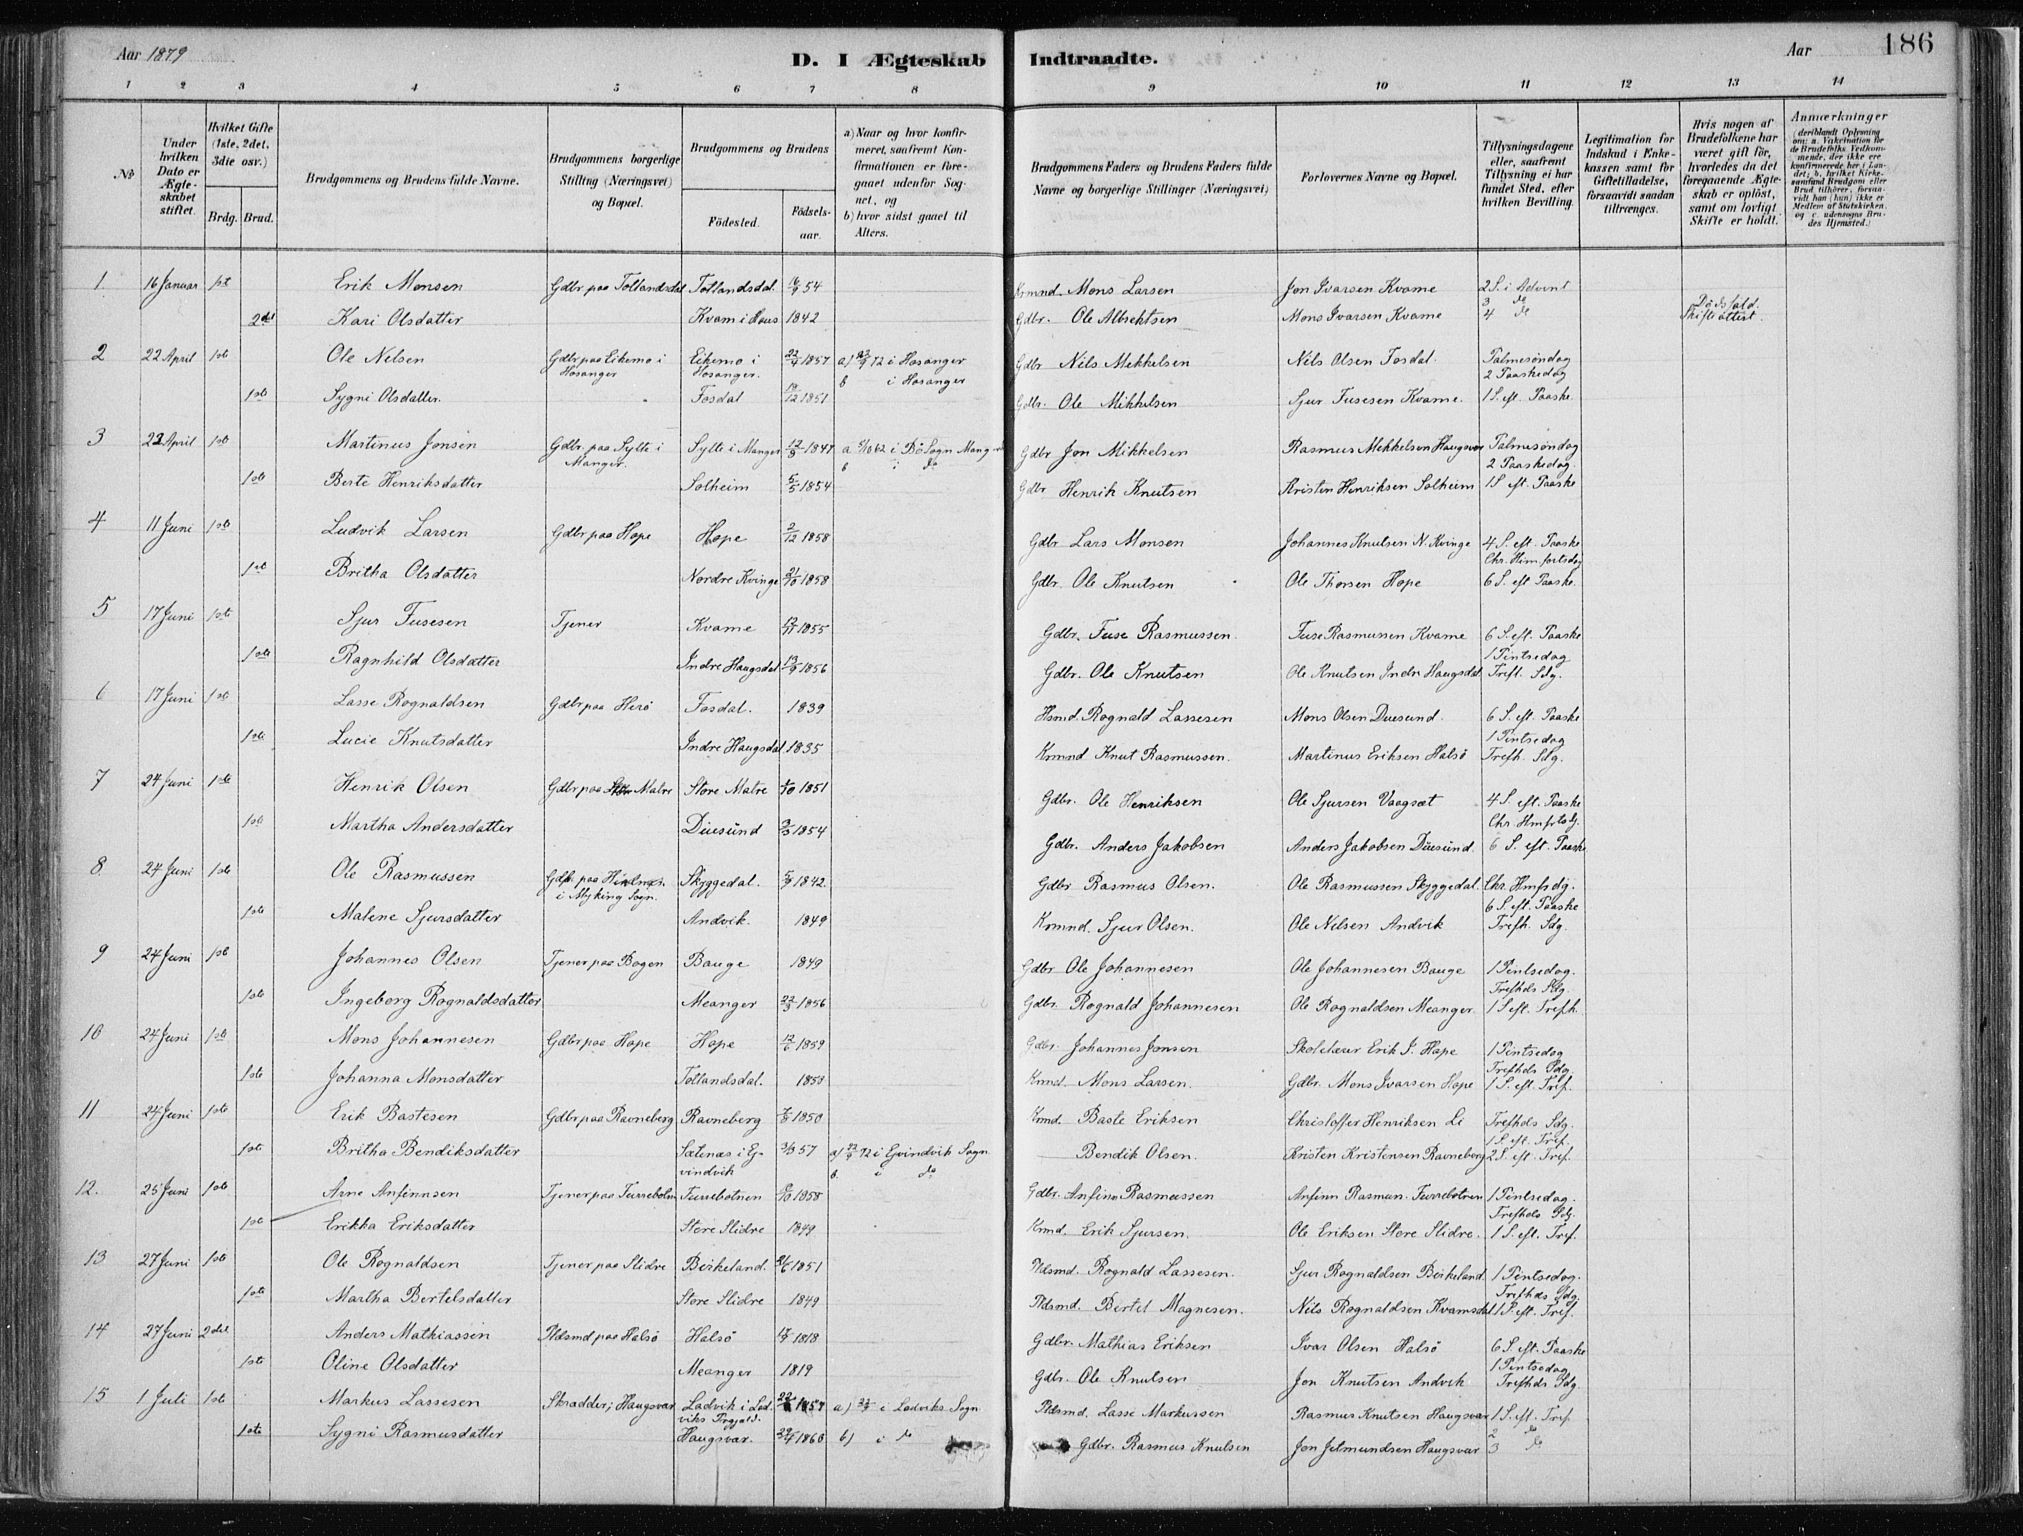 Aar 1879
D. I Ægteskab Indtraadte.
Aar
186
1 2 3 4 5 6 7 8 9 10 11 12 13 14
No
Under hvilken Dato er Ægteskabet stiftet.
Hvilket Gifte (1ste, 2det, 3die osv.)
Brdg. Brud.
Brudgommens og Brudens fulde Navne.
Brudgommens borgerlige Stilling (Næringsvei) og Bopæl.
Brudgommens og Brudens
Fødested.
Fødselsaar.
a) Naar og hvor konfirmeret, saafremt Konfirmationen er foregaaet udenfor Sognet, og
b) hvor sidst gaaet til Alters.
Brudgommens Faders og Brudens Faders fulde Navne og borgerlige Stillinger (Næringsvei)
Forlovernes Navne og Bopæl.
Tillysningsdagene eller, saafremt Tillysning ei har fundet Sted, efter hvilken Bevilling.
Legitimation for Indskud i Enkekassen samt for Giftetilladelse, forsaavidt saadan tiltrænges.
Hvis nogen af Brudefolkene har været gift før, hvorledes da det foregaaende Ægteskab er opløst, samt om lovligt Skifte er holdt.
Anmærkninger
1 16 Januar 1st Erik Monsen Gdbr paa Totlandsdal Totlandsdal. 16/9 54 Krmnd Mons Larsen Jon Ivarsen Kvame 2 S. i Advent
2det Kari Olsdatter Kvam i Haus 1842 Gdbr. Ole Albrektsen Mons Ivarsen Kvame 3 do 4 do Dødsfald.
2 22 April 1ste Ole Nelsen Gdbr paa Eikemo i Hosanger Eikemo i Hosanger. 22/4 1857 a) 22/9 72 i Hosanger Gdbr Nils Mekkelsen Nils Olsen Fosdal. Palmesøndag
b i Hosanger 2 Paaskedag
1ste Sygni Olsdatter. Fosdal 10/12 1851 Gdbr. Ole Mikkelsen Sjur Fusesen Kvame. 1 S. eft. Paaske
3 22 April 1ste Martinus Jonsen Gdbr. paa Sylte i Manger. Sylte i Manger 1847 i Bø Sogn Manger Gdbr Jon Mikkelsen Rasmus Mekkelsen Haugsvær Palmesøndag
b i do 2 Paaskedag
1ste Berte Henriksdatter Solheim 5/5 1854 Gdbr Henrik Knutsen Kristen Henriksen Solheim 1 S eft. Paaske
4 11 Juni 1ste Ludvik Larsen Gdbr paa Hope Hope 2/12 1858 Gdbr Lars Monsen Johannes Knutsen N. Kvinge 4 S. eft. Paaske
Chr. Himfartsdag
1ste Britha Olsdatter Nordre Kvinge 21/10 1858 Gdbr. Ole Knutsen Ole Thorsen Hope 6 S. eft Paaske.
5 17 Juni 1ste Sjur Fusesen Tjener Kvame 1855 Gdbr. Fuse Rasmussen. Fuse Rasmusen Kvame 6 S. eft. Paaske
1 Pintsedag
1ste Ragnhild Olsdatter Indre Haugsdal 1856 Gdbr. Ole Knutsen Ole Knutsen Indre Haugsdal Treft. Sdg.
6 17 Juni 1ste Lasse Rognaldsen Gdbr paa Herø Fosdal. 1839 Hsmd. Rognald Lassesen Mons Olsen Duesund. 6 S. eft. Paaske
1 Pintsedag
1ste Lucie Knutsdatter Indre Haugsdal 1835 Krmnd Knut Rasmussen. Martinus Eriksen Halsø Trefh. Sdg.
7 24 Juni 1ste Henrik Olsen Gdbr paa Matre Store Matre 1851 Gdbr. Ole Henriksen Ole Sjursen Vaagsæt 4 S. eft. Paaske
Chr. Hmfrtsdg.
1ste Martha Andersdatter Duesund 1854 Gdbr. Anders Jakobsen Anders Jakobsen Duesund. 6 S. eft. Paaske
8 24 Juni 1ste Ole Rasmussen Gdbr. paa i Myking Sogn. Skyggedal. 1842. Gdbr Rasmus Olsen. Ole Rasmussen Skyggedal. Chr. Hmfrdg.
6 S. eft. Paaske
1ste Malene Sjursdatter Andvik. 1849 Krmnd. Sjur Olsen. Ole Nilsen Andvik Trefh. Sdg.
9 24 Juni 1ste Johannes Olsen Tjener paa Bogen Bauge 1849 Gdbr Ole Johannesen Ole Johannesen Bauge 1 Pintsedag.
Trefhds Sdg.
1ste Ingeborg Rognaldsdatter Meanger 22/3 1856 Gdbr. Rognald Johannesen Ole Rognaldsen Meanger. 1 S eft. Trefh.
10 24 Juni 1ste Mons Johannesen Gdbr paa Hope Hope 12/6 1859 Gdbr. Johannes Jonsen Skolelærer Erik J. Hope 1 Pintsedag
Trefhds Sdg
1ste Johanna Monsdatter Totlandsdal. 1853 Krmd. Mons Larsen. Gdbr. Mons Ivarsen Hope 1 S. eft. Tref.
11 24 Juni 1ste Erik Bastesen Gdbr paa Ravneberg Ravneberg 1850 Krmd. Baste Eriksen Christoffer Henriksen Li Trefhds Sdg.
1 S. eft. Tref.
1ste Britha Bendiksdatter Sætenæs i Ejvindvik 3/3 57 a) 72 i Ejvindvik Sogn Bendik Olsen. Kristen Kristensen Ravneberg 2 S. eft. Tref
b. i do
12. 25 Juni 1ste Arne Anfinnsen Tjener paa Furrebotn Furrebotnen 1858 Gdbr. Anfinn Rasmussen Anfinn Rasmusn. Furrebotnen 1 Pintsedag
Trefhds Sdg.
1ste Erikka Eriksdatter Store Slidre 1849 Krmd. Erik Sjursen. Ole Eriksen Store Slidre. 1 S. eft. Tref.
13 27 Juni 1ste Ole Rognaldsen Tjener paa Slidre Birkeland. 1851 Pldsmd. Rognald Lassesen. Sjur Rognaldsen Birkeland 1 Pintsedag.
Trefhds Sdg.
1ste Martha Bertelsdatter Store Slidre 1849 Pldsmd. Bertel Magnesen. Nils Rognaldsen Kvamsdal 1 S. eft. Tref.
14 27 Juni 2det Anders Mathiassen Pldsmd paa Halsø Halsø 1818 Gdbr. Mathias Eriksen Ivar Olsen Halsø 6 S. eft. Paaske
1 Pintsedag
1ste Oline Olsdatter Meanger 1819 Gdbr. Ole Knutsen Jon Knutsen Andvik Trefhds Sdg.
15 1 Juli 1ste Markus Lassesen Skrædder, Haugsvær Ladvik i Ladviks Prgjæld. 1857 a) i Ladviks Sogn Pldsmd. Lasse Markussen Rasmus Knutsen Haugsvær 1 S. eft. Tref
1ste Sygni Rasmusdatter Haugsvær. 29/4 1860 b) i do Gdbr. Rasmus Knutsen Jon Jetmundsen Haugsvær 2 do 3 do